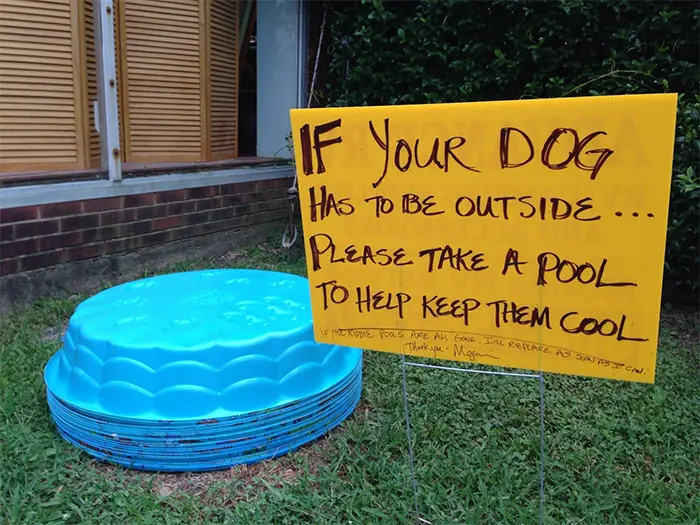 IF YOUR DOG
HAS TO BE OUTSIDE...
PLEASE TAKE A POOL
TO HELP KEEP THEM COOL
IF THE KIDDIE POOLS ARE ALL GONE. I'LL REPLACE AS SOON AS I CAN.
Thank you - Megan